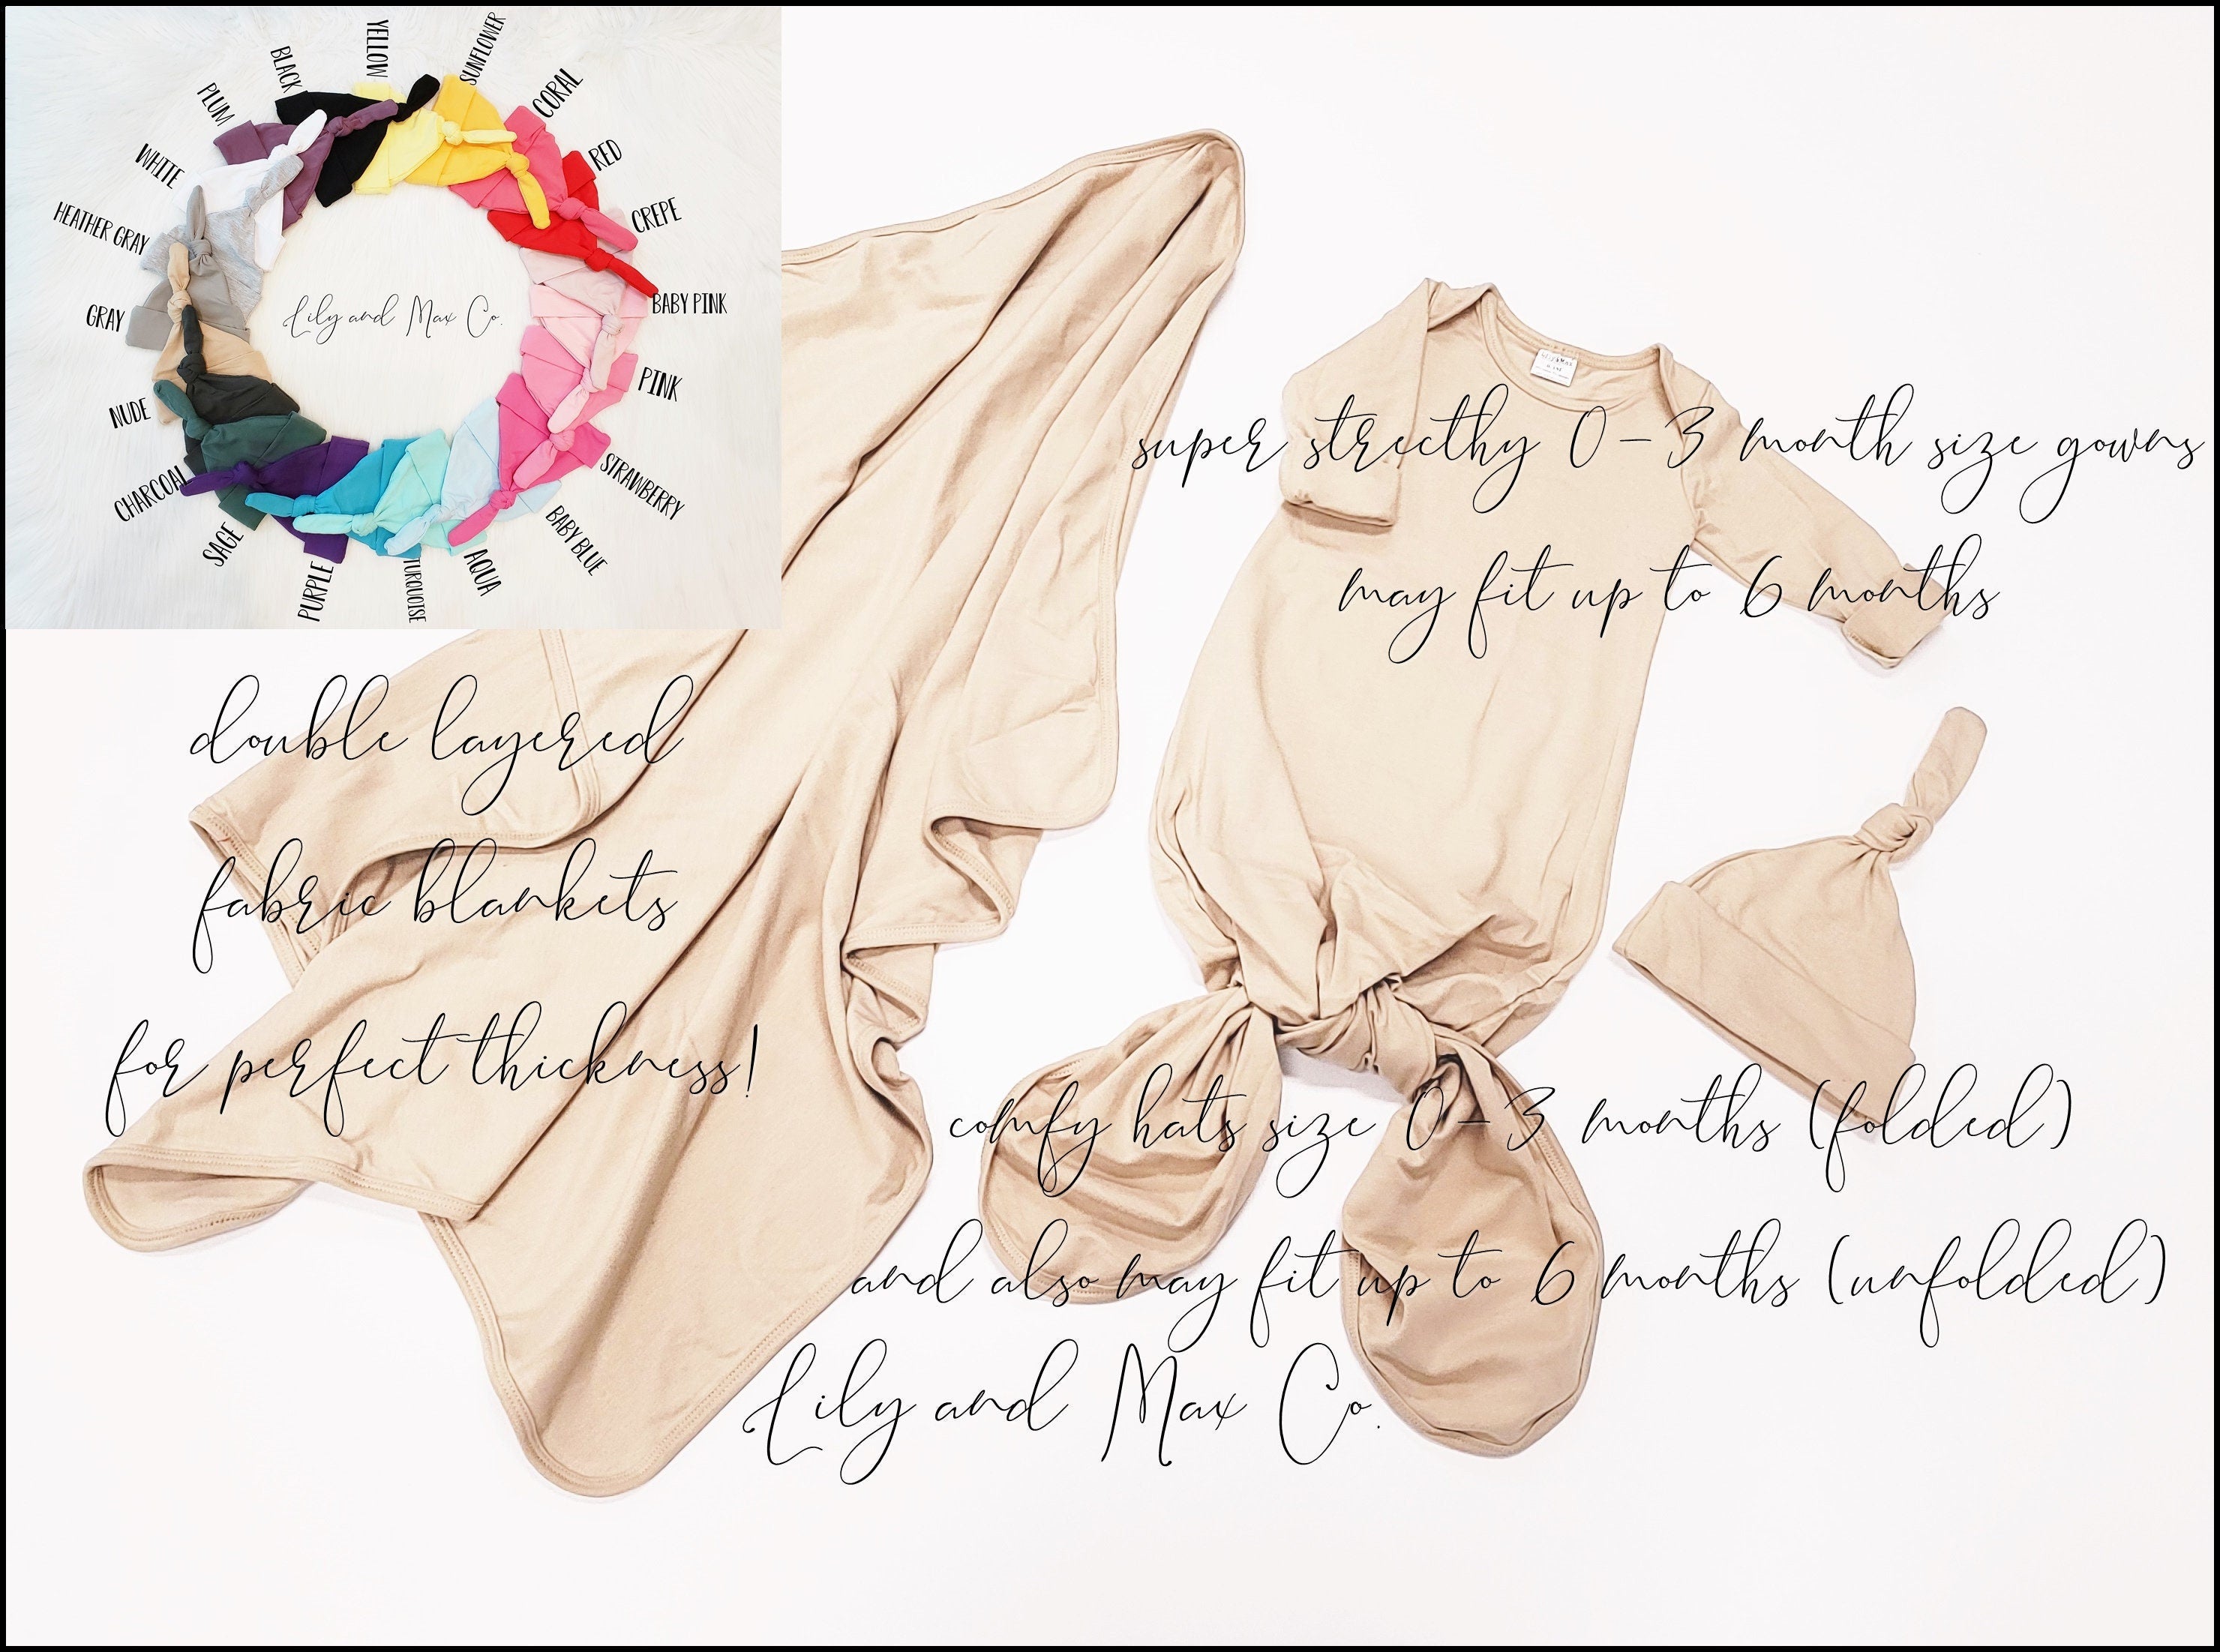 YELLOW
SUNFLOWER
BLACK
CORAL
PLUM
RED
WHITE
CREPE
HEATHER GRAY
BABY PINK
GRAY
Lily and Max Co.
PINK
NUDE
STRAWBERRY
CHARCOAL
BABY BLUE
SAGE
AQUA
PURPLE
TURQUOISE
super strecthy 0-3 month size gowns
may fit up to 6 months
double layered
fabric blankets
for perfect thickness!
comfy hats size 0-3 months (folded)
and also may fit up to 6 months (unfolded)
Lily and Max Co.